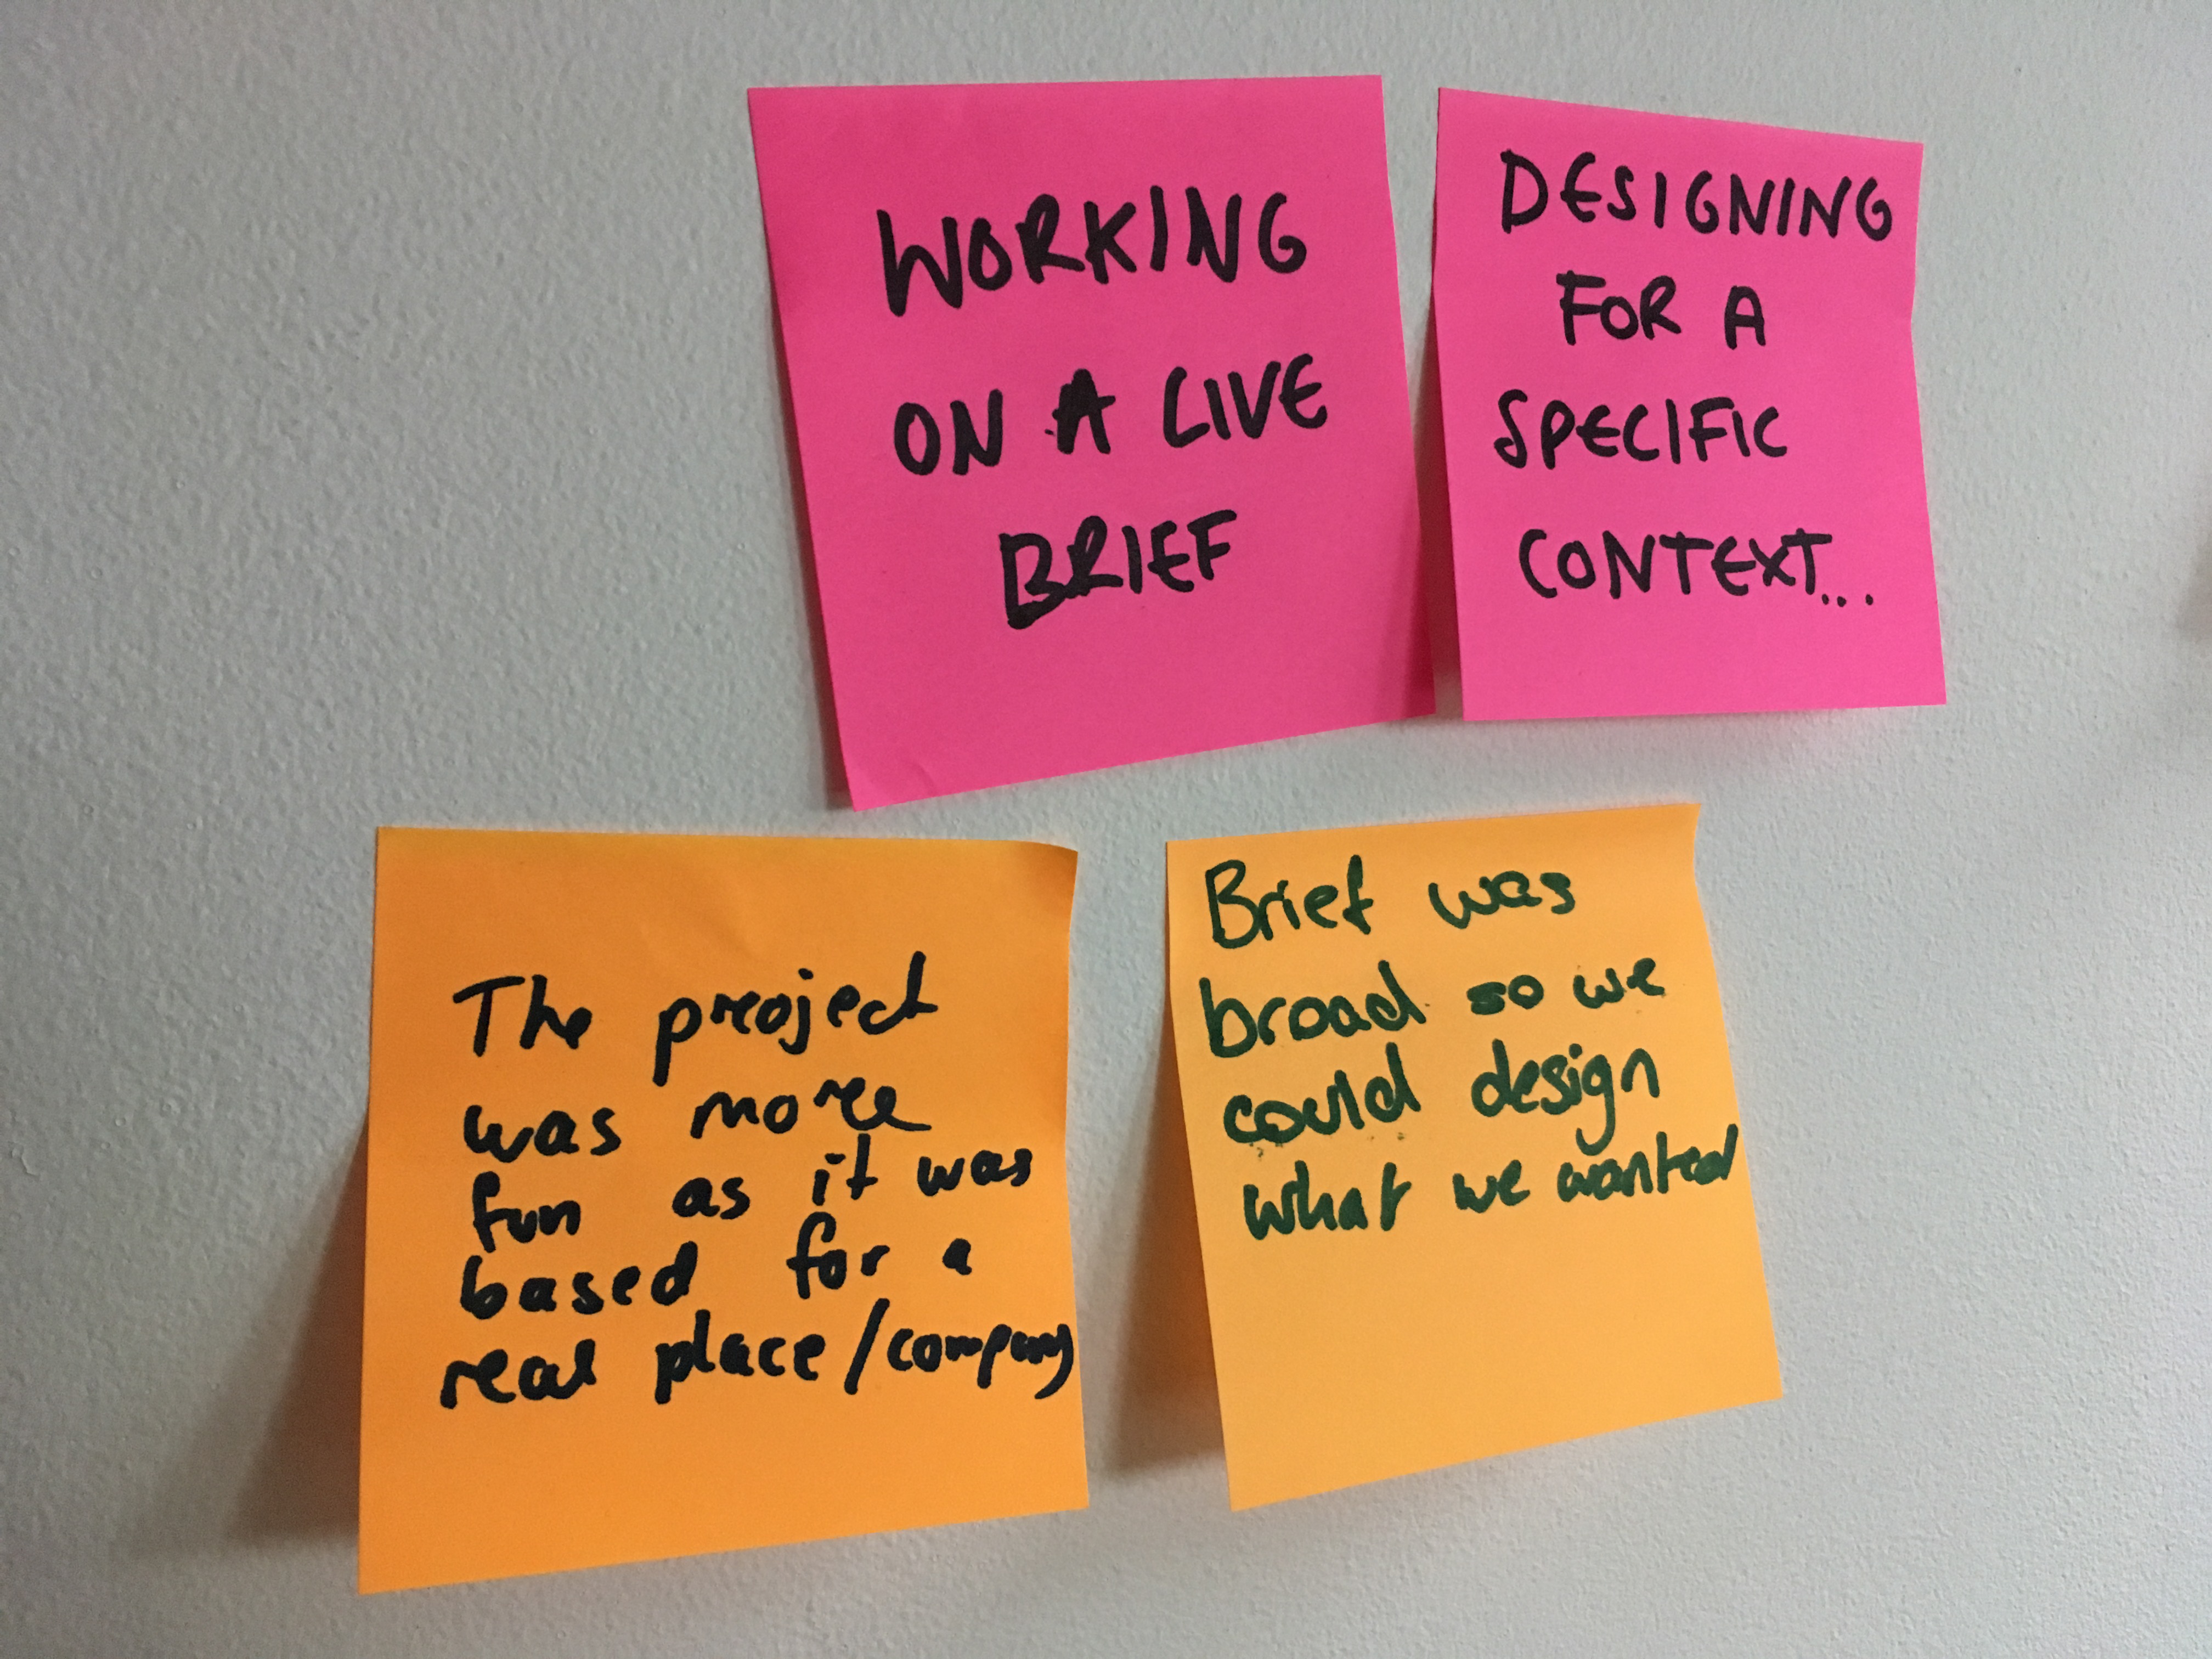 WORKING
ON A LIVE
BRIEF
DESIGNING
FOR A
SPECIFIC
CONTEXT...
The project
was more
fun as it was
based for a
real place/company
Brief was
broad so we
could design
what we wanted